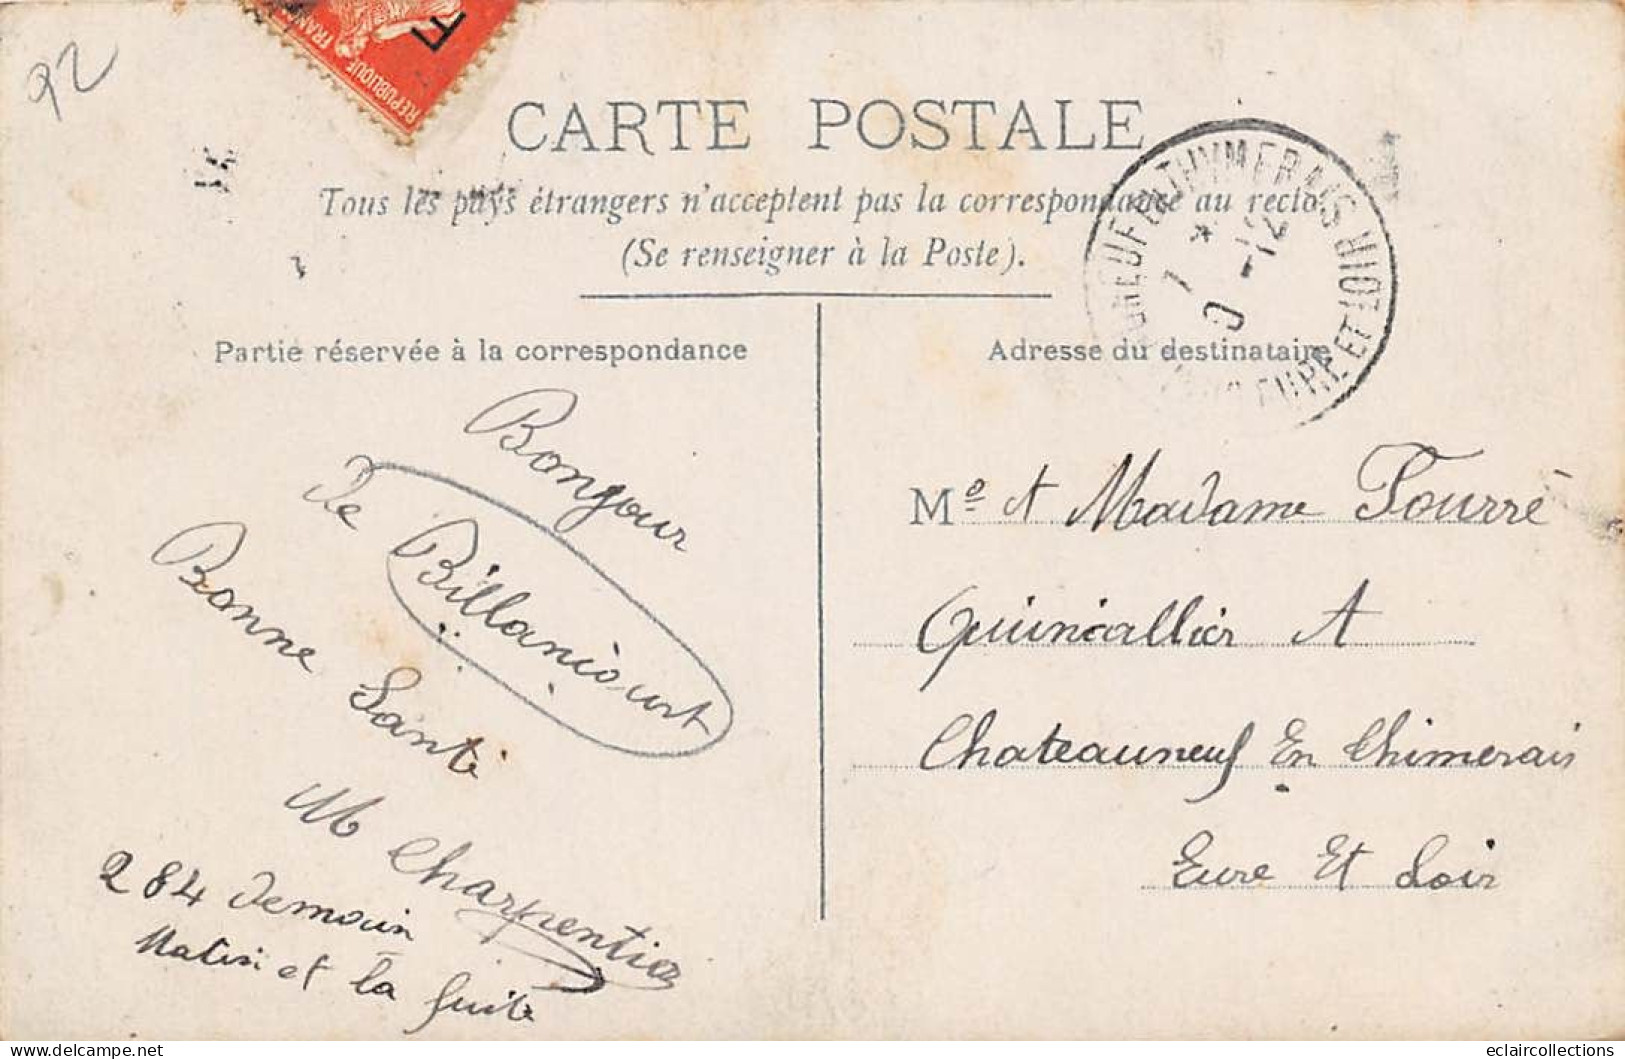 92
REPUBLIQUE
FRANC
F
CARTE POSTALE
Tous les pays étrangers n'acceptent pas la correspondance au recto.
(Se renseigner à la Poste).
Partie réservée à la correspondance
Adresse du destinataire
NEUF EN THYMERAIS EURE ET LOIR
7 *
9 -12
Bonjour
De Billancourt
Bonne Santé
M Charpentier
284 demain
Matin et la fuite
M. et Madame Fourré
Quincallier A
Chateauneuf En Chimerais
Eure Et Loir
eclaircollections